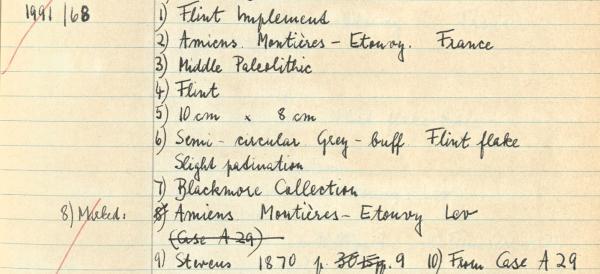 1991/68 1) Flint Implement
2) Amiens. Montières - Etouvy. France
3) Middle Paleolithic
4) Flint
5) 10 cm x 8 cm
6) Semi-circular Grey-buff Flint flake
Slight patination
7) Blackmore Collection
8) Marked: 8) Amiens Montières - Etouvy Lev
(Case A 29)
9) Stevens 1870 p. 9 10) From Case A 29